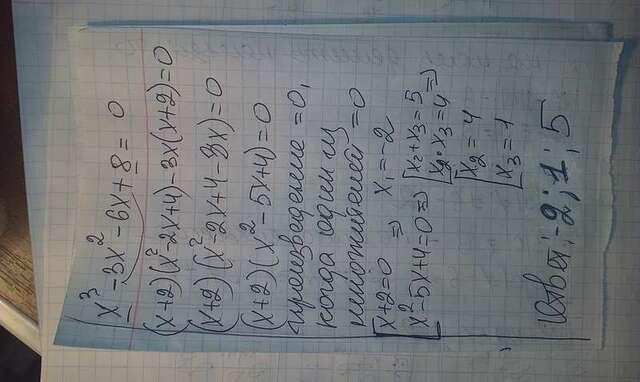 x³ - 3x² - 6x + 8 = 0
(x+2)(x²-2x+4) - 3x(x+2) = 0
(x+2)(x²-2x+4-3x) = 0
(x+2)(x²-5x+4) = 0
произведение = 0,
когда один из
множителей = 0
[x+2=0 => x₁=-2
x²-5x+4=0 => [x₂+x₃=5
x₂·x₃=4 =>
[x₂=4
x₃=1
Ответ: -2; 1; 5